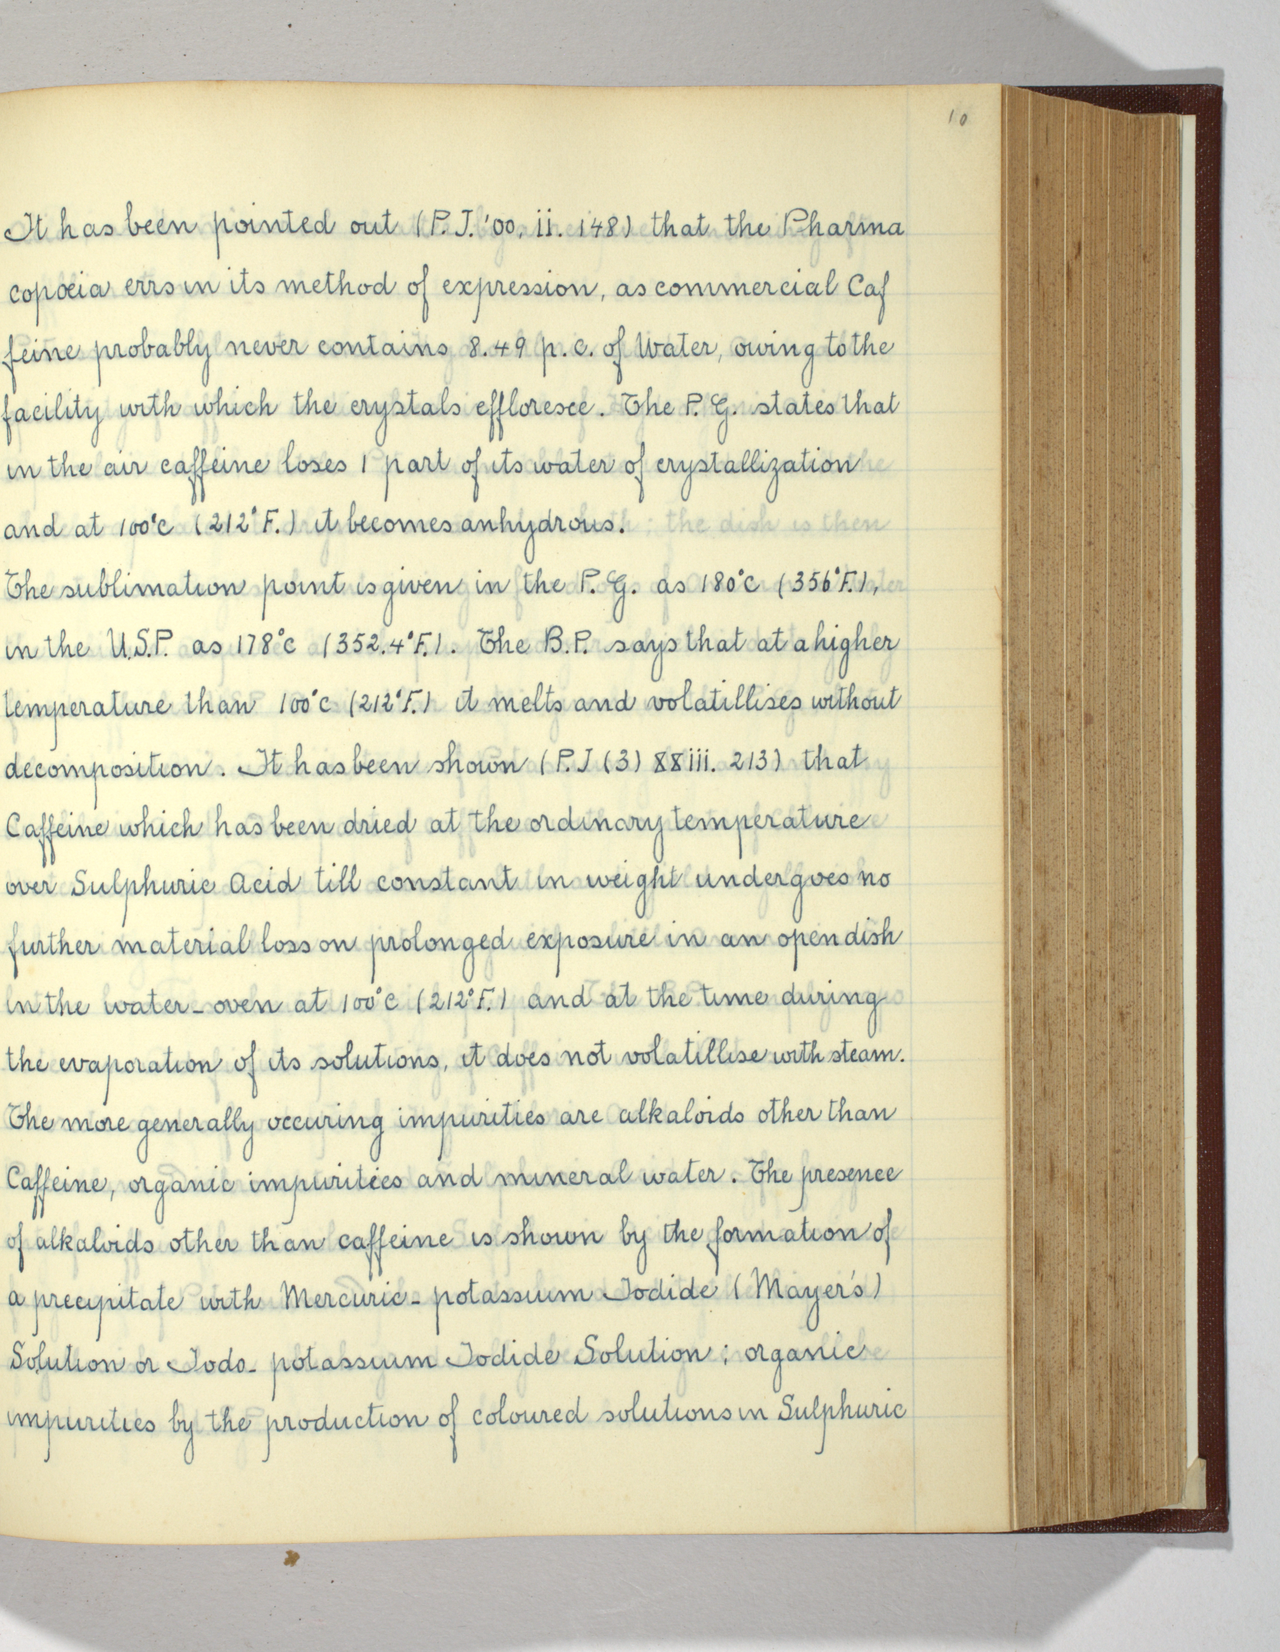 10
It has been pointed out (P.J. '00, ii. 148) that the Pharma
copœia errs in its method of expression, as commercial Caf
feine probably never contains 8.49 p.c. of Water, owing to the
facility with which the crystals effloresce. The P.G. states that
in the air caffeine loses 1 part of its water of crystallization
and at 100°c (212°F.) it becomes anhydrous.
The sublimation point is given in the P.G. as 180°c (356°F.),
in the U.S.P. as 178°c (352.4°F.). The B.P. says that at a higher
temperature than 100°c (212°F.) it melts and volatillises without
decomposition. It has been shown (P.J (3) XXiii. 213) that
Caffeine which has been dried at the ordinary temperature
over Sulphuric Acid till constant in weight undergoes no
further material loss on prolonged exposure in an open dish
in the water-oven at 100°c (212°F.) and at the time during
the evaporation of its solutions, it does not volatillise with steam.
The more generally occuring impurities are alkaloids other than
Caffeine, organic impurities and mineral water. The presence
of alkaloids other than caffeine is shown by the formation of
a precipitate with Mercuric-potassium Iodide (Mayer's)
Solution or Iodo-potassium Iodide Solution; organic
impurities by the production of coloured solutions in Sulphuric